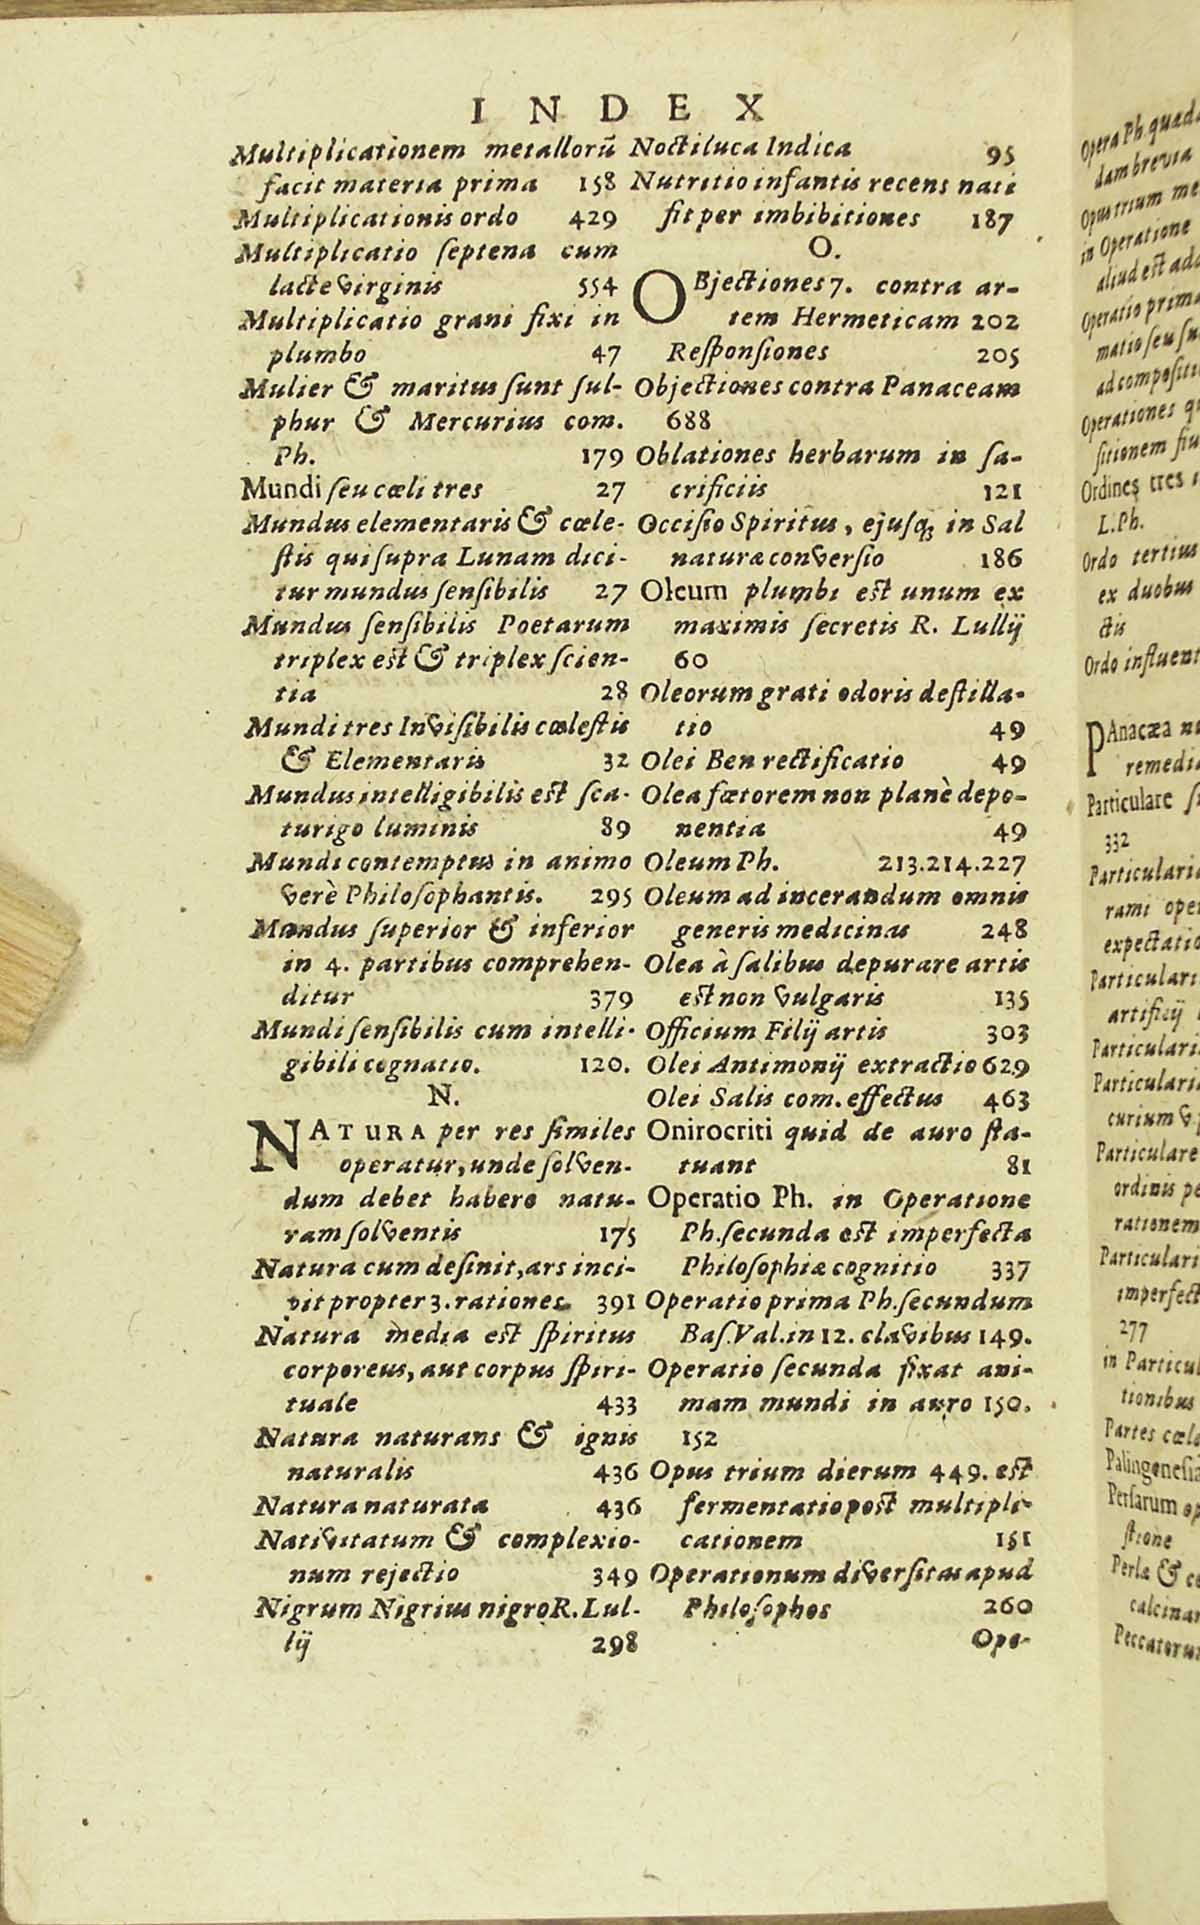 INDEX
Multiplicationem metallorū
facit materia prima 158
Multiplicationis ordo 429
Multiplicatio ſeptena cum
lacte virginis 554
Multiplicatio grani fixi in
plumbo 47
Mulier & maritus ſunt ſul-
phur & Mercurius com.
Ph. 179
Mundi ſeu cœli tres 27
Mundus elementaris & cœle-
ſtis qui ſupra Lunam dici-
tur mundus ſenſibilis 27
Mundus ſenſibilis Poetarum
triplex est & triplex ſcien-
tia 28
Mundi tres Inviſibilis cœleſtis
& Elementaris 32
Mundus intelligibilis est ſca-
turigo luminis 89
Mundi contemptus in animo
verè Philoſophantis. 295
Mundus ſuperior & inferior
in 4. partibus comprehen-
ditur 379
Mundi ſenſibilis cum intelli-
gibili cognatio. 120.
N.
NATURA per res ſimiles
operatur, unde ſolven-
dum debet habere natu-
ram ſolventis 175
Natura cum deſinit, ars inci-
pit propter 3. rationes 391
Natura media est ſpiritus
corporeus, aut corpus ſpiri-
tuale 433
Natura naturans & ignis
naturalis 436
Natura naturata 436
Nativitatum & complexio-
num rejectio 349
Nigrum Nigrius nigro R. Lul-
lij 298
Noctiluca Indica 95
Nutritio infantis recens nati
fit per imbibitiones 187
O.
OBjectiones 7. contra ar-
tem Hermeticam 202
Reſponſiones 205
Objectiones contra Panaceam
688
Oblationes herbarum in ſa-
crificiis 121
Occiſio Spiritus, ejuſq; in Sal
naturæ converſio 186
Oleum plumbi est unum ex
maximis ſecretis R. Lullij
60
Oleorum grati odoris deſtilla-
tio 49
Olei Ben rectificatio 49
Olea fœtorem non planè depo-
nentia 49
Oleum Ph. 213.214.227
Oleum ad incerandum omnis
generis medicinas 248
Olea à ſalibus depurare artis
est non vulgaris 135
Officium Filij artis 303
Olei Antimonij extractio 629
Olei Salis com. effectus 463
Onirocriti quid de auro ſta-
tuant 81
Operatio Ph. in Operatione
Ph. ſecunda est imperfecta
Philoſophiæ cognitio 337
Operatio prima Ph. ſecundum
Baſ. Val. in 12. clavibus 149.
Operatio ſecunda fixat ani-
mam mundi in auro 150.
152
Opus trium dierum 449. est
fermentatio post multipli-
cationem 151
Operationum diverſitas apud
Philoſophos 260
Ope-
Opera Ph. quæda
dam brevia
Opus trium me
in Operatione
aliud est ada
Operatio prima
matio ſeu ſu
ad compoſiti
Operationes qu
ſitionem fiu
Ordines tres i
L. Ph.
Ordo tertius
ex duobus
ctis
Ordo influent
PAnacæa nu
remedia
Particulare ſi
332
Particularia
rami oper
expectatio
Particulari
artificij
Particularis
Particularia
curium v
Particulare
ordinis pe
rationem
Particulari
imperfect
277
in Particul
tionibus
Partes cœlo
Palingeneſia
Perſarum op
ſtione
Perlæ & co
calcinar
Peccatorum